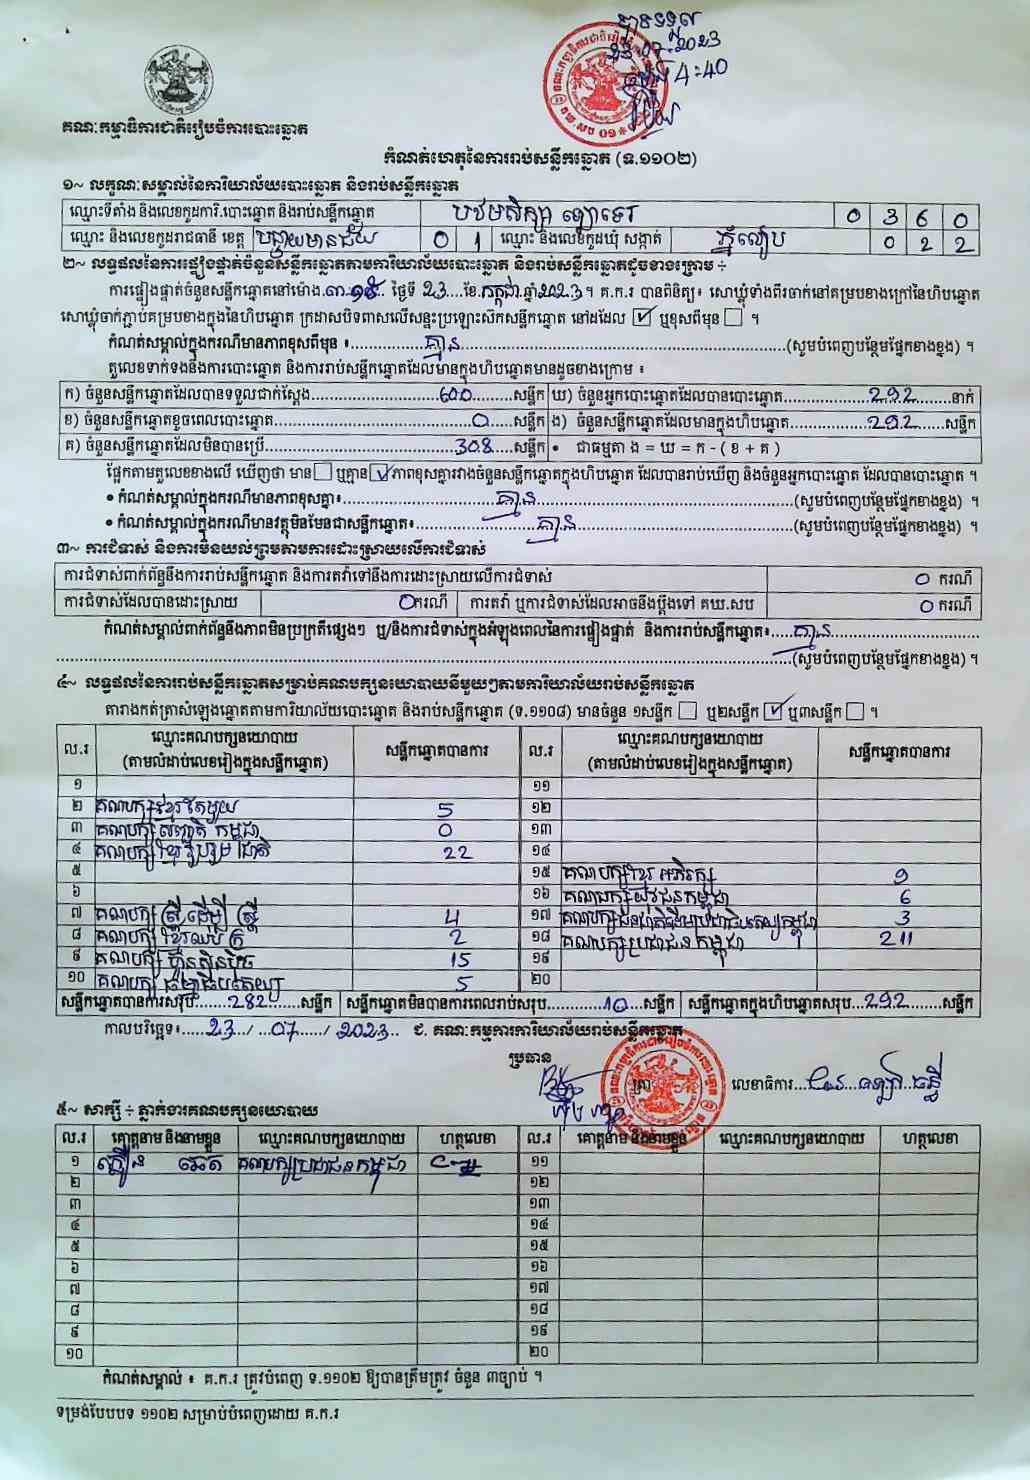 បានទទួល
23.07.2023
ម៉ោង 4:40
គណៈកម្មាធិការជាតិរៀបចំការបោះឆ្នោត
គធ.សប 01
កំណត់ហេតុនៃការរាប់សន្លឹកឆ្នោត (ទ.១១០២)
១~ លក្ខណៈសម្គាល់នៃការិយាល័យបោះឆ្នោត និងរាប់សន្លឹកឆ្នោត
ឈ្មោះទីតាំង និងលេខកូដការិ.បោះឆ្នោត និងរាប់សន្លឹកឆ្នោត បឋមសិក្សា 0 3 6 0
ឈ្មោះ និងលេខកូដរាជធានី ខេត្ត បន្ទាយមានជ័យ 0 1 ឈ្មោះ និងលេខកូដឃុំ សង្កាត់ ភ្នំលៀប 0 2 2
២~ លទ្ធផលនៃការផ្ទៀងផ្ទាត់ចំនួនសន្លឹកឆ្នោតតាមការិយាល័យបោះឆ្នោត និងរាប់សន្លឹកឆ្នោតដូចខាងក្រោម ÷
ការផ្ទៀងផ្ទាត់ចំនួនសន្លឹកឆ្នោតនៅម៉ោង ៣:១៥ ថ្ងៃទី 23 ខែ កក្កដា ឆ្នាំ 2023 ។ គ.ក.រ បានពិនិត្យ៖ សោឃ្លុំទាំងពីរចាក់នៅគម្របខាងក្រៅនៃហិបឆ្នោត
សោឃ្លុំចាក់ភ្ជាប់គម្របខាងក្នុងនៃហិបឆ្នោត ក្រដាសបិទពាសលើសន្ទះប្រឡោះសិកសន្លឹកឆ្នោត នៅដដែល ☑ ឬខុសពីមុន ☐ ។
កំណត់សម្គាល់ក្នុងករណីមានភាពខុសពីមុន ៖ គ្មាន (សូមបំពេញបន្ថែមផ្នែកខាងខ្នង) ។
តួលេខទាក់ទងនឹងការបោះឆ្នោត និងការរាប់សន្លឹកឆ្នោតដែលមានក្នុងហិបឆ្នោតមានដូចខាងក្រោម ៖
ក) ចំនួនសន្លឹកឆ្នោតដែលបានទទួលជាក់ស្តែង 600 សន្លឹក ឃ) ចំនួនអ្នកបោះឆ្នោតដែលបានបោះឆ្នោត 292 នាក់
ខ) ចំនួនសន្លឹកឆ្នោតខូចពេលបោះឆ្នោត 0 សន្លឹក ង) ចំនួនសន្លឹកឆ្នោតដែលមានក្នុងហិបឆ្នោត 292 សន្លឹក
គ) ចំនួនសន្លឹកឆ្នោតដែលមិនបានប្រើ 308 សន្លឹក • ជាធម្មតា ង = ឃ = ក - ( ខ + គ )
ផ្អែកតាមតួលេខខាងលើ ឃើញថា មាន ☐ ឬគ្មាន ☑ ភាពខុសគ្នារវាងចំនួនសន្លឹកឆ្នោតក្នុងហិបឆ្នោត ដែលបានរាប់ឃើញ និងចំនួនអ្នកបោះឆ្នោត ដែលបានបោះឆ្នោត ។
• កំណត់សម្គាល់ក្នុងករណីមានភាពខុសគ្នា៖ គ្មាន (សូមបំពេញបន្ថែមផ្នែកខាងខ្នង) ។
• កំណត់សម្គាល់ក្នុងករណីមានវត្ថុមិនមែនជាសន្លឹកឆ្នោត៖ គ្មាន (សូមបំពេញបន្ថែមផ្នែកខាងខ្នង) ។
៣~ ការជំទាស់ និងការមិនយល់ព្រមតាមការដោះស្រាយលើការជំទាស់
ការជំទាស់ពាក់ព័ន្ធនឹងការរាប់សន្លឹកឆ្នោត និងការតវ៉ាទៅនឹងការដោះស្រាយលើការជំទាស់ 0 ករណី
ការជំទាស់ដែលបានដោះស្រាយ 0 ករណី ការតវ៉ា ឬការជំទាស់ដែលអាចនឹងប្តឹងទៅ គឃ.សប 0 ករណី
កំណត់សម្គាល់ពាក់ព័ន្ធនឹងភាពមិនប្រក្រតីផ្សេងៗ ឬ/និងការជំទាស់ក្នុងអំឡុងពេលនៃការផ្ទៀងផ្ទាត់ និងការរាប់សន្លឹកឆ្នោត៖ គ្មាន
(សូមបំពេញបន្ថែមផ្នែកខាងខ្នង) ។
៤~ លទ្ធផលនៃការរាប់សន្លឹកឆ្នោតសម្រាប់គណបក្សនយោបាយនីមួយៗតាមការិយាល័យរាប់សន្លឹកឆ្នោត
តារាងកត់ត្រាសំឡេងឆ្នោតតាមការិយាល័យបោះឆ្នោត និងរាប់សន្លឹកឆ្នោត (ទ.១១០៨) មានចំនួន ១សន្លឹក ☐ ឬ២សន្លឹក ☑ ឬ៣សន្លឹក ☐ ។
ល.រ ឈ្មោះគណបក្សនយោបាយ (តាមលំដាប់លេខរៀងក្នុងសន្លឹកឆ្នោត) សន្លឹកឆ្នោតបានការ ល.រ ឈ្មោះគណបក្សនយោបាយ (តាមលំដាប់លេខរៀងក្នុងសន្លឹកឆ្នោត) សន្លឹកឆ្នោតបានការ
១ ១១
២ គណបក្សខ្មែរតែមួយ 5 ១២
៣ គណបក្សសញ្ជាតិកម្ពុជា 0 ១៣
៤ គណបក្សខ្មែររួបរួមជាតិ 22 ១៤
៥ ១៥ គណបក្សខ្មែរអភិរក្ស 9
៦ ១៦ គណបក្សយុវជនកម្ពុជា 6
៧ គណបក្សស្ត្រីដើម្បីស្ត្រី 4 ១៧ គណបក្សជនជាតិដើមប្រជាធិបតេយ្យកម្ពុជា 3
៨ គណបក្សខ្មែរឈប់ក្រ 2 ១៨ គណបក្សប្រជាជនកម្ពុជា 211
៩ គណបក្សហ៊្វុនស៊ិនប៉ិច 15 ១៩
១០ គណបក្សធម្មាធិបតេយ្យ 5 ២០
សន្លឹកឆ្នោតបានការសរុប 282 សន្លឹក សន្លឹកឆ្នោតមិនបានការពេលរាប់សរុប 10 សន្លឹក សន្លឹកឆ្នោតក្នុងហិបឆ្នោតសរុប 292 សន្លឹក
កាលបរិច្ឆេទ៖ 23 / 07 / 2023 ជ. គណៈកម្មការការិយាល័យរាប់សន្លឹកឆ្នោត
ប្រធាន
ត្រា លេខាធិការ
៥~ សាក្សី ÷ ភ្នាក់ងារគណបក្សនយោបាយ
ល.រ គោត្តនាម និងនាមខ្លួន ឈ្មោះគណបក្សនយោបាយ ហត្ថលេខា ល.រ គោត្តនាម និងនាមខ្លួន ឈ្មោះគណបក្សនយោបាយ ហត្ថលេខា
១ គណបក្សប្រជាជនកម្ពុជា ១១
២ ១២
៣ ១៣
៤ ១៤
៥ ១៥
៦ ១៦
៧ ១៧
៨ ១៨
៩ ១៩
១០ ២០
កំណត់សម្គាល់ ៖ គ.ក.រ ត្រូវបំពេញ ទ.១១០២ ឱ្យបានត្រឹមត្រូវ ចំនួន ៣ច្បាប់ ។
ទម្រង់បែបបទ ១១០២ សម្រាប់បំពេញដោយ គ.ក.រ